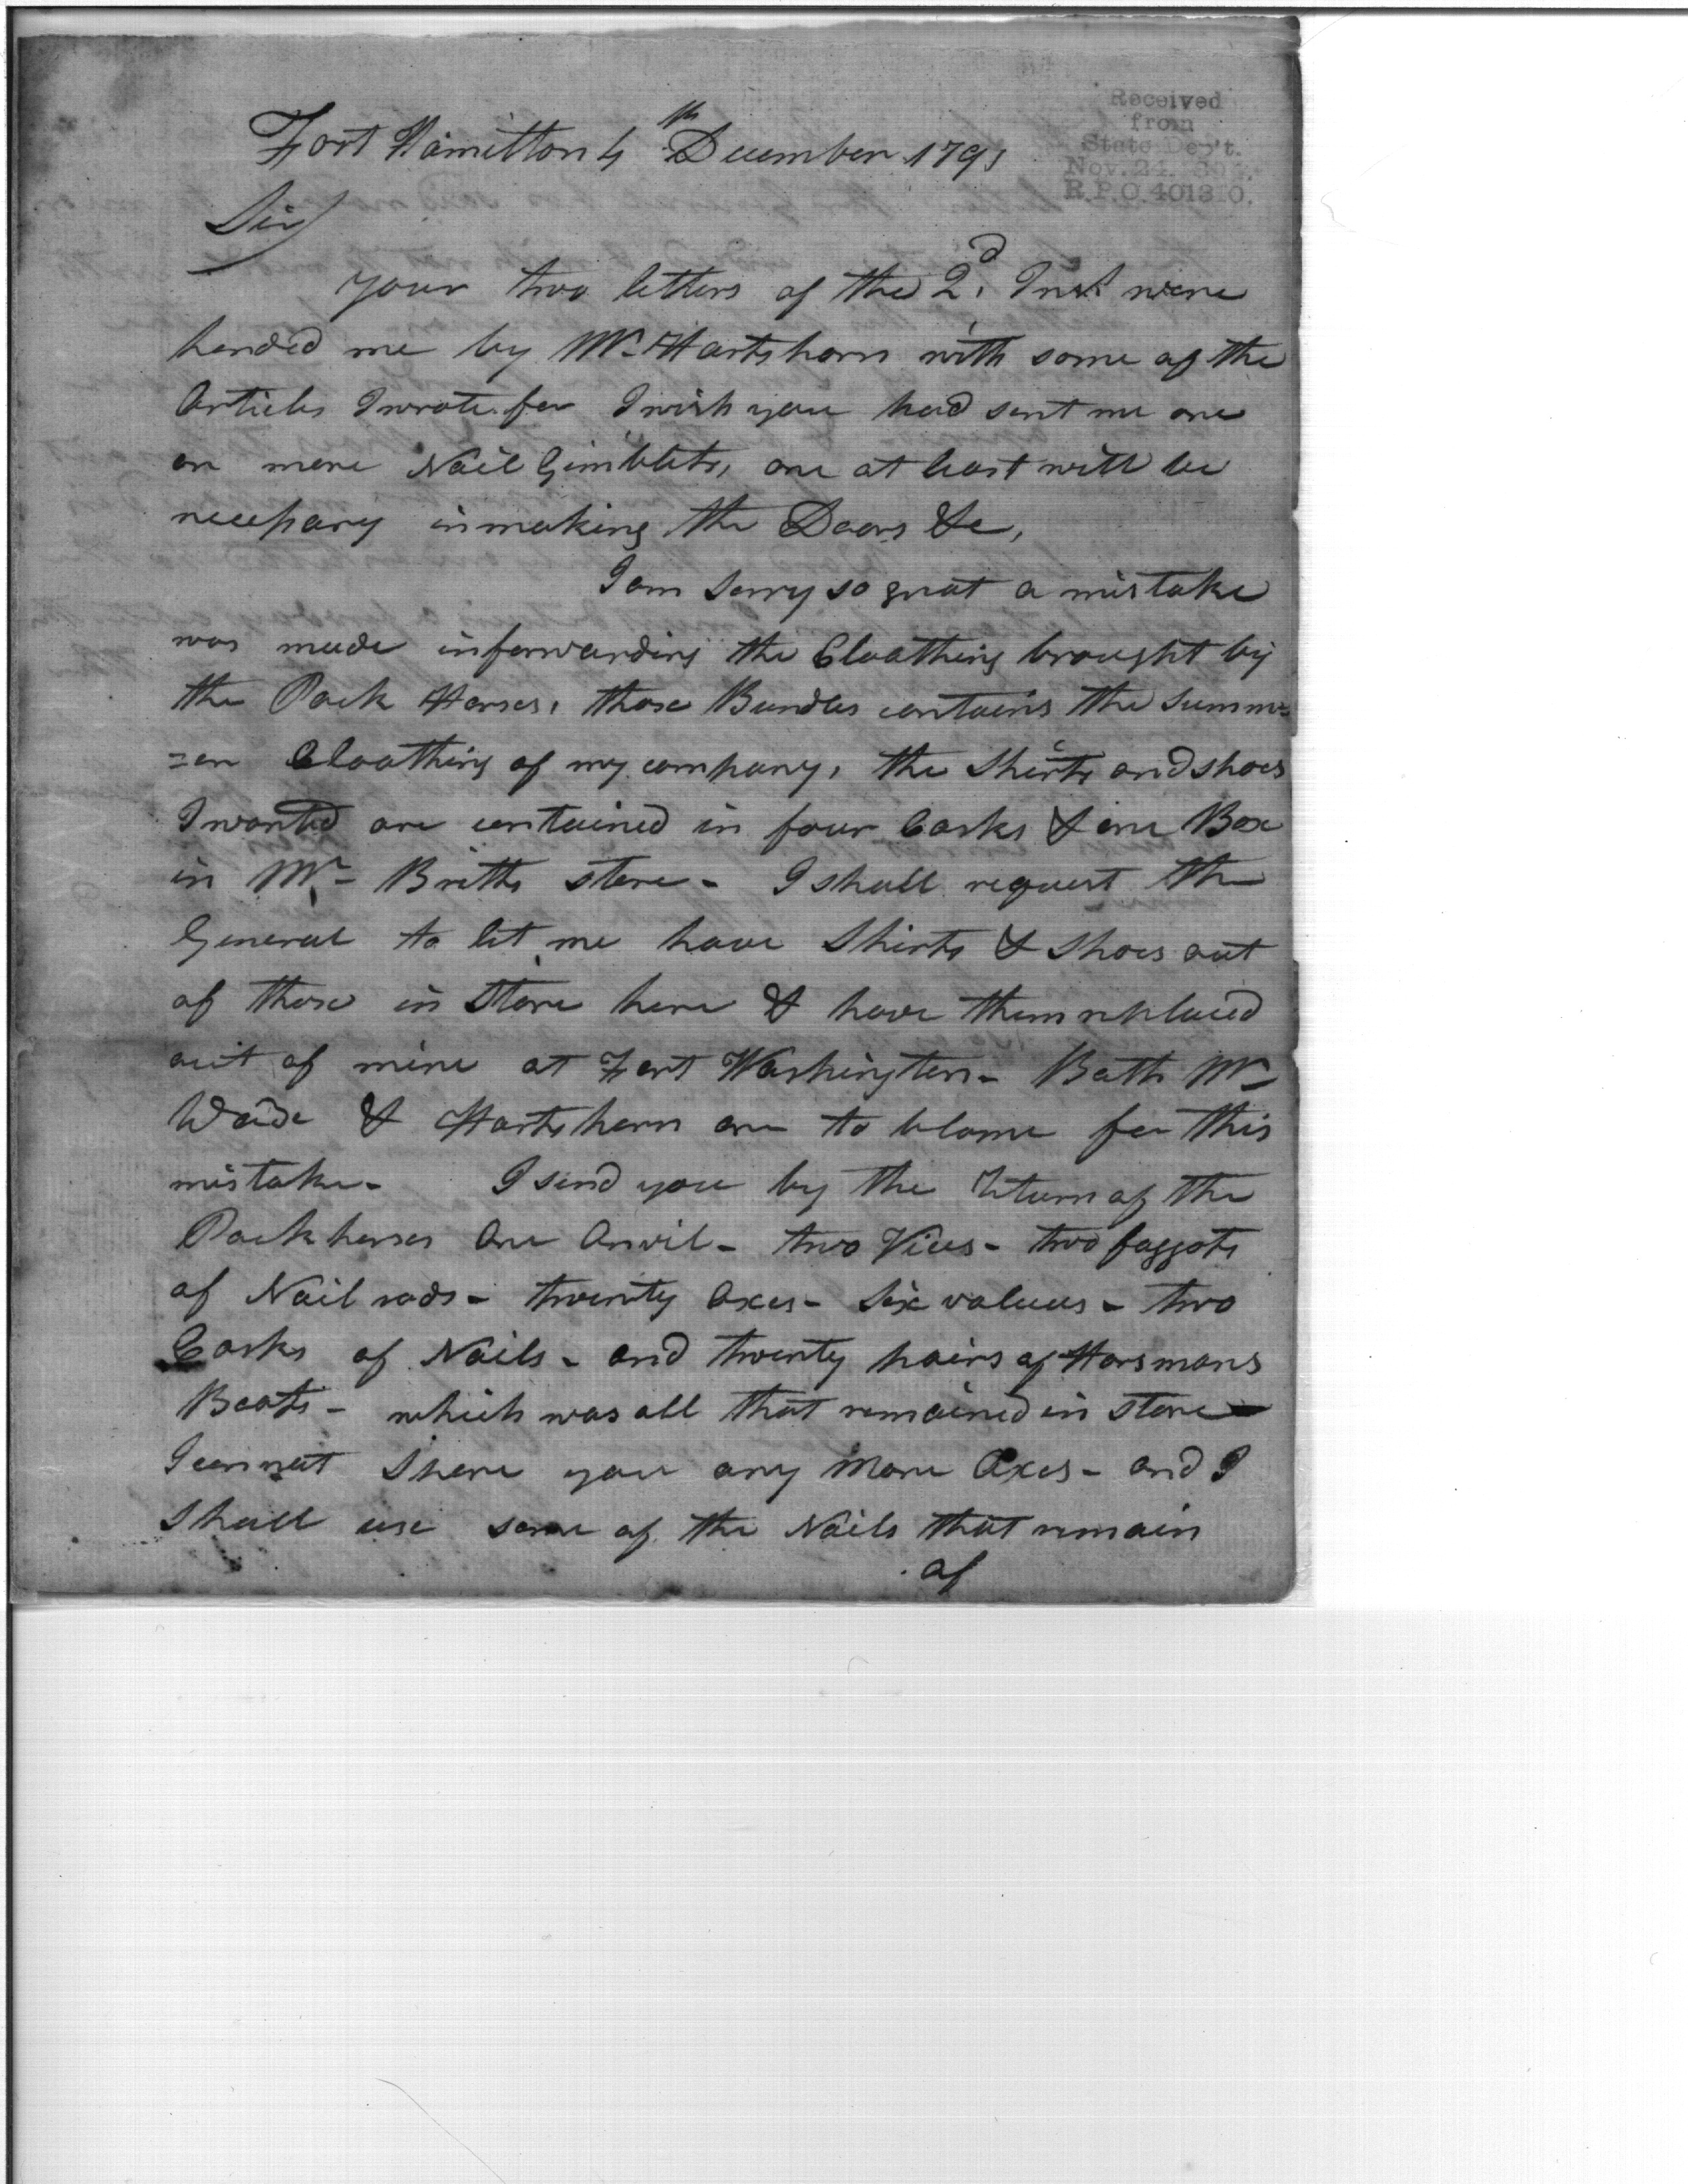 Received
from
State Dep't.
Nov. 24.
R.P.O. 401310.
Fort Hamilton 4th December 1791
Sir
Your two letters of the 2d. Inst were
handed me by Mr. Hartshorn with some of the
Articles I wrote for I wish you had sent me one
or more Nail Gimblets, one at least will be
necessary in making the Doors &c,
I am sorry so great a mistake
was made in forwarding the Cloathing brought by
the Pack Horses, those Bundles contains the Summ=
=er Cloathing of my company, the Shirts and shoes
I wanted are contained in four Casks & one Box
in Mr. Britts store - I shall request the
General to let me have Shirts & Shoes out
of those in Store here & have them replaced
out of mine at Fort Washington - Both Mr
Wade & Hartshorn are to blame for this
mistake - I send you by the return of the
Packhorses One Anvil - two Vices - two faggots
of Nail rods - twenty Axes - Six valices - two
Casks of Nails - and twenty pairs of Horsmans
Boots - which was all that remained in store -
I cannot Spare you any More Axes - and I
Shall use some of the Nails that remain
of